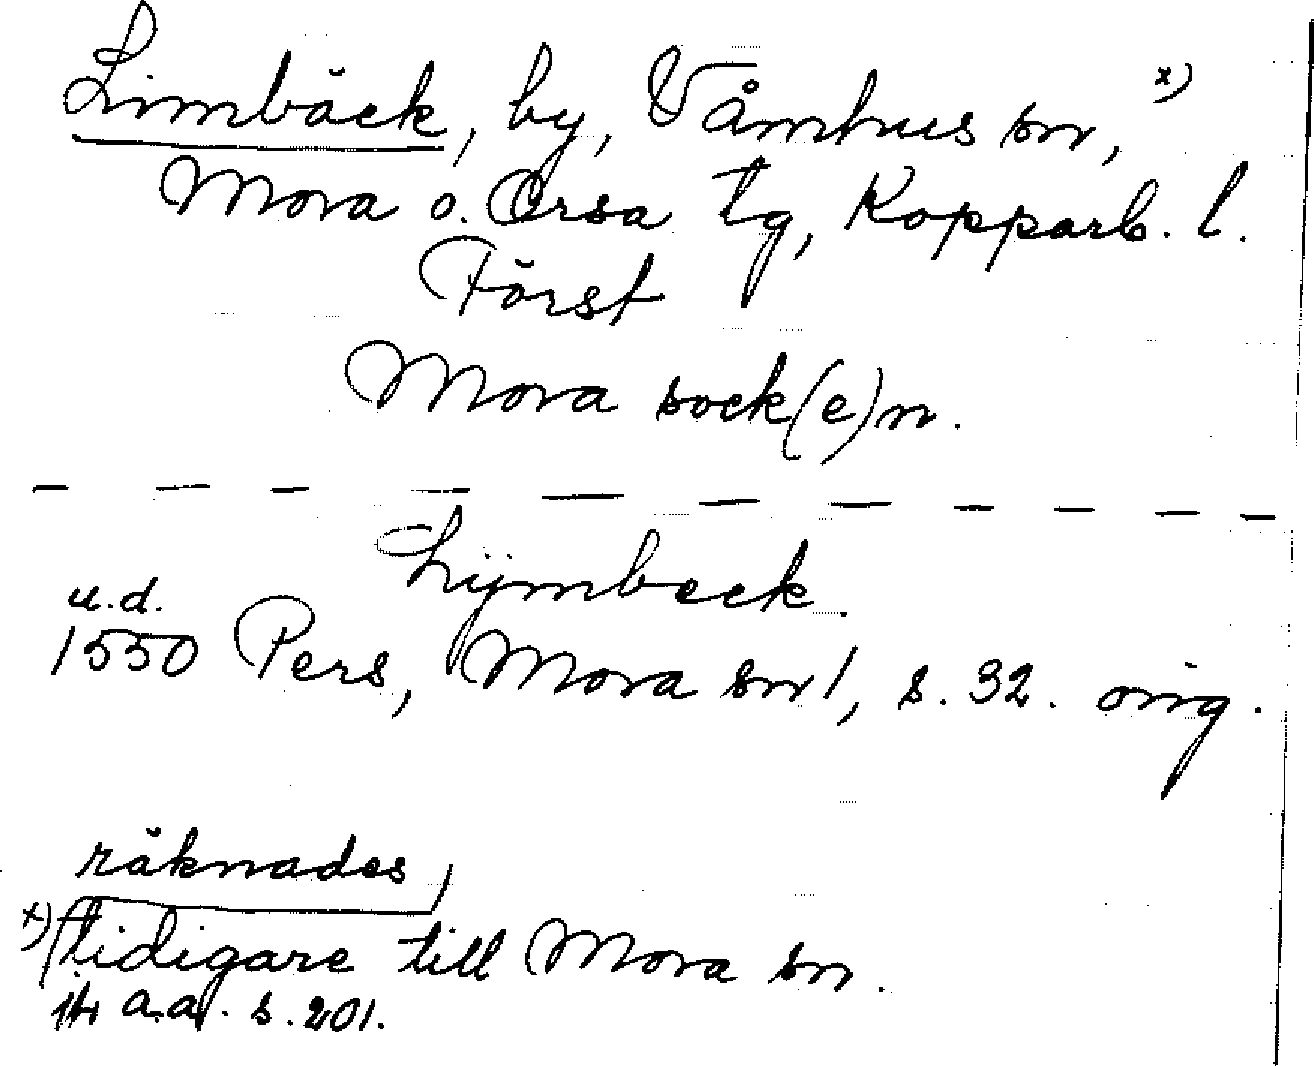 Limbäck, by, Våmhus sn, x)
Mora o. Orsa tg, Kopparb. l.
Först
Mora sock(e)n.
Lÿmbeck.
u.d.
1550 Pers, Mora sn 1, s. 32. orig.
räknades
x) tidigare till Mora sn.
a.a. s. 201.